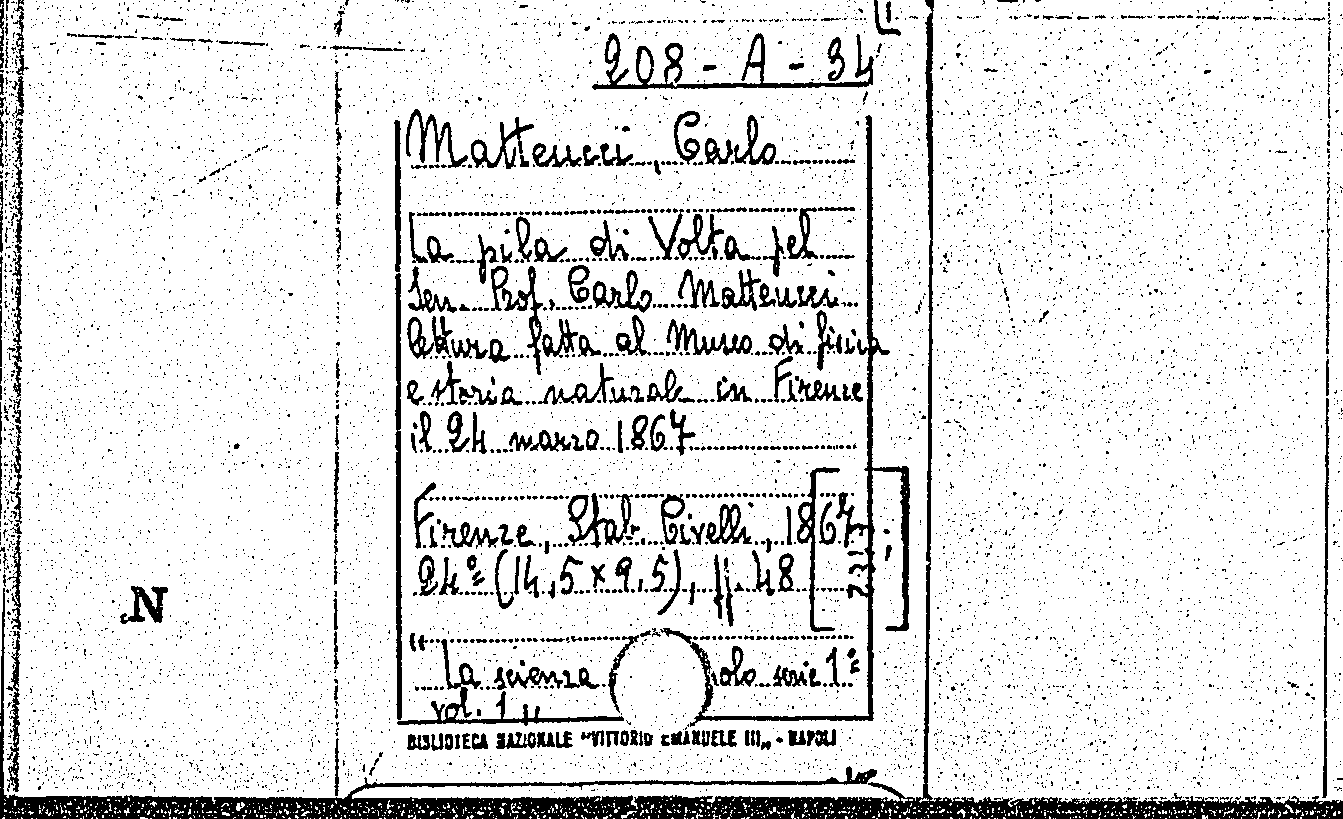 208 - A - 34
Matteucci, Carlo
La pila di Volta pel
Sen. Prof. Carlo Matteucci
lettura fatta al Museo di fisica
e storia naturale in Firenze
il 24 marzo 1867
Firenze, Stab. Civelli, 1867
24º (14,5 x 9,5), pp. 48
"La scienza olo serie 1ª
vol. 1"
BIBLIOTECA NAZIONALE "VITTORIO EMANUELE III„ - NAPOLI
N